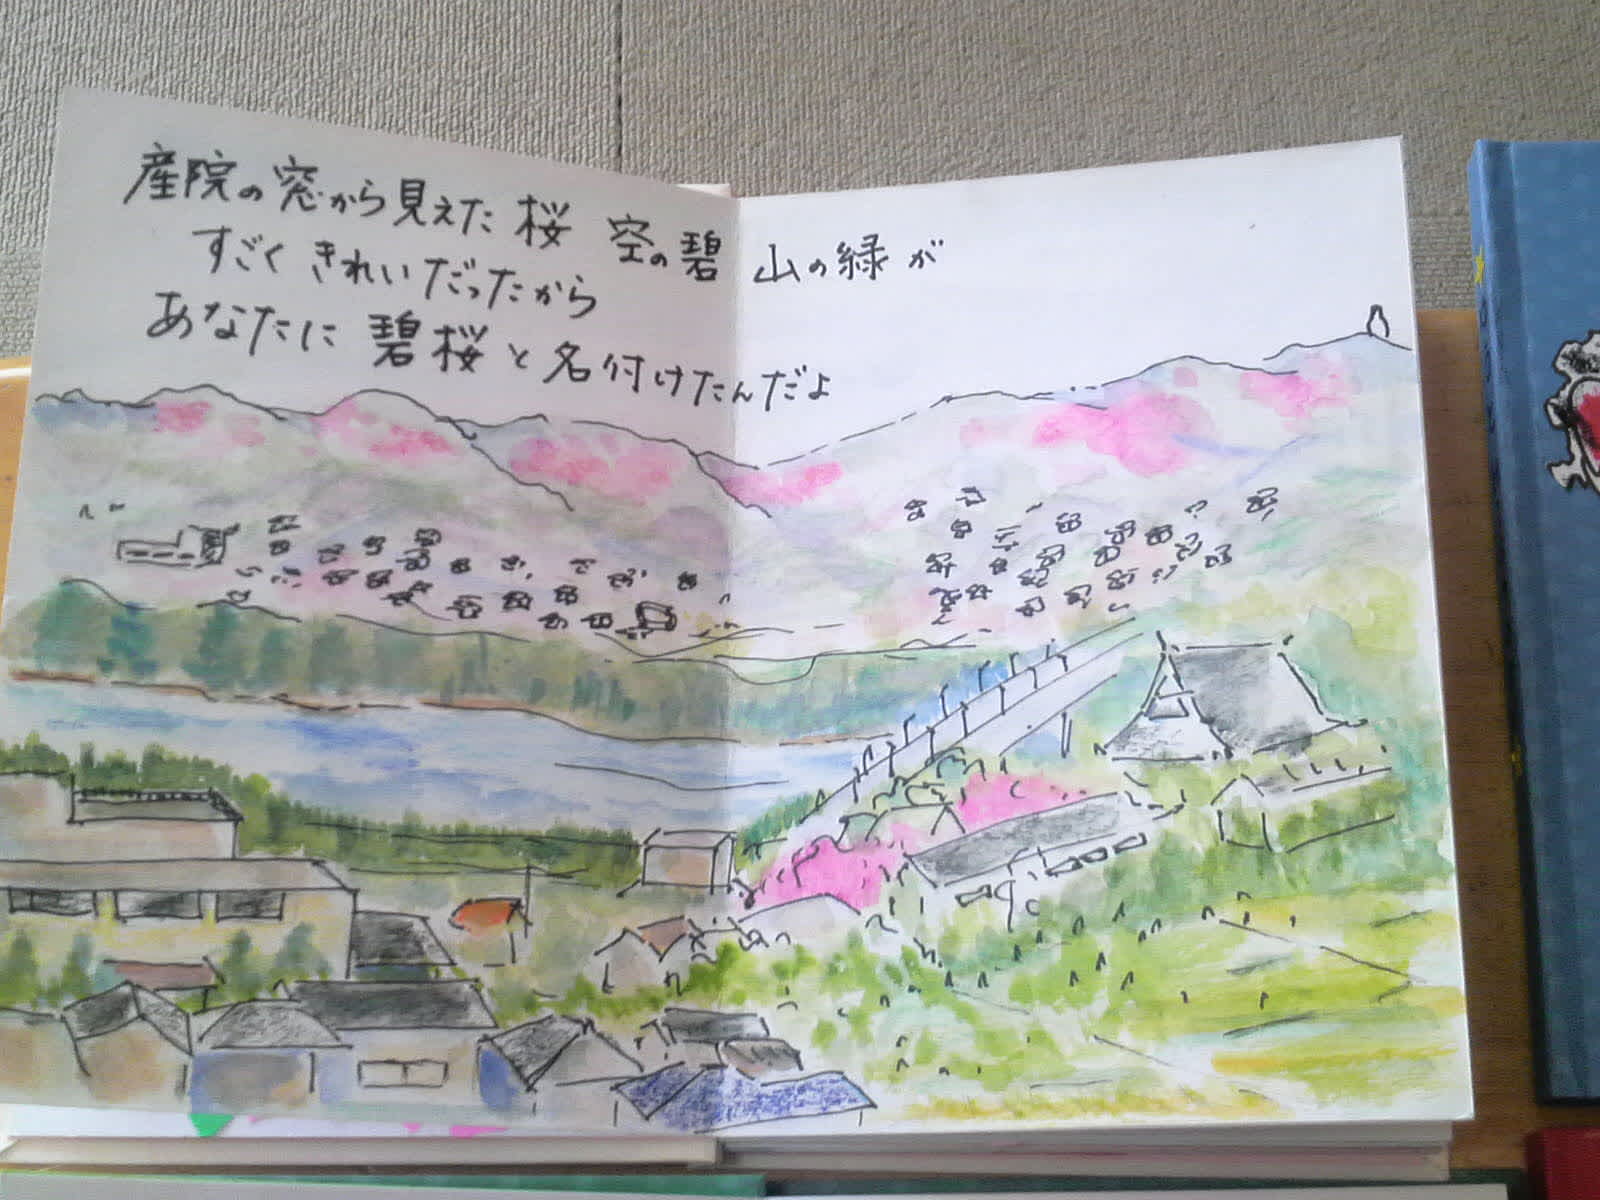 産院の窓から見えた桜 空の碧 山の緑が
すごくきれいだったから
あなたに碧桜と名付けたんだよ